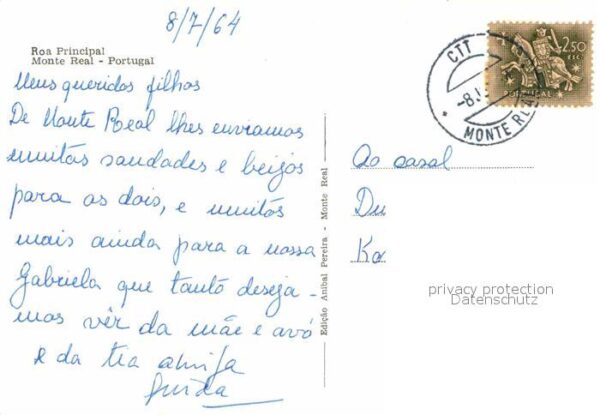 8/7/64
Roa Principal
Monte Real - Portugal
Meus queridos filhos
De Monte Real lhes enviamos
muitas saudades e beijos
para os dois, e muitos
mais ainda para a nossa
Gabriela que tanto deseja-
mos vêr da mãe e avó
e da tia amiga
Guida
Edição Anibal Pereira - Monte Real
CTT
-8.J
MONTE REAL
2$50
ESC.
PORTUGAL
Ao casal
Du
Ka
privacy protection
Datenschutz